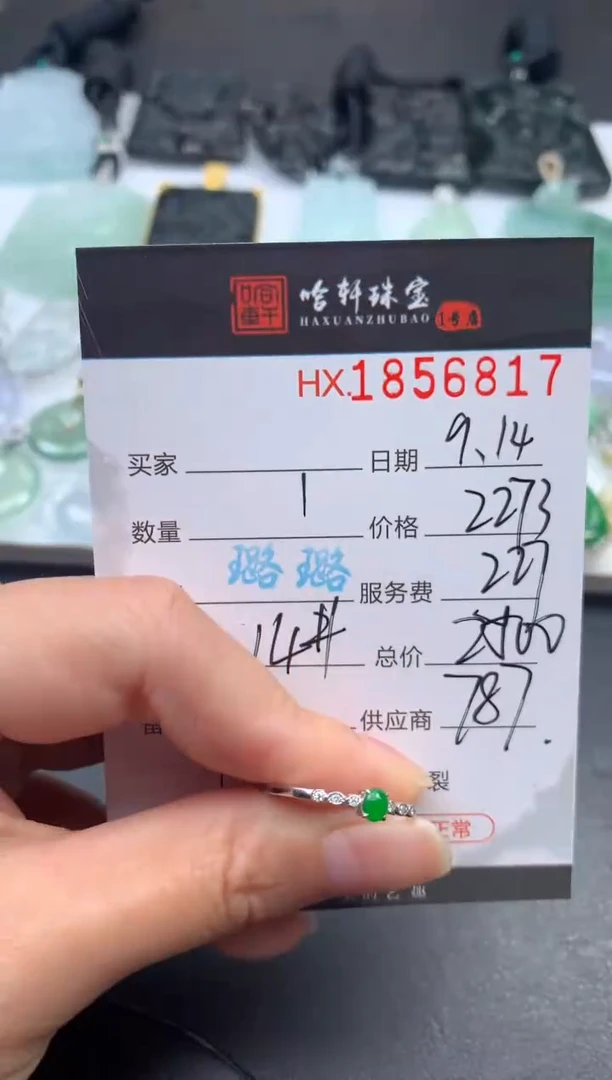 哈轩珠宝
HAXUANZHUBAO 1号店
HX.1856817
买家 日期 9.14
数量 1 价格 2273
璐璐 服务费 227
14# 总价 2500
供应商 787.
裂
正常